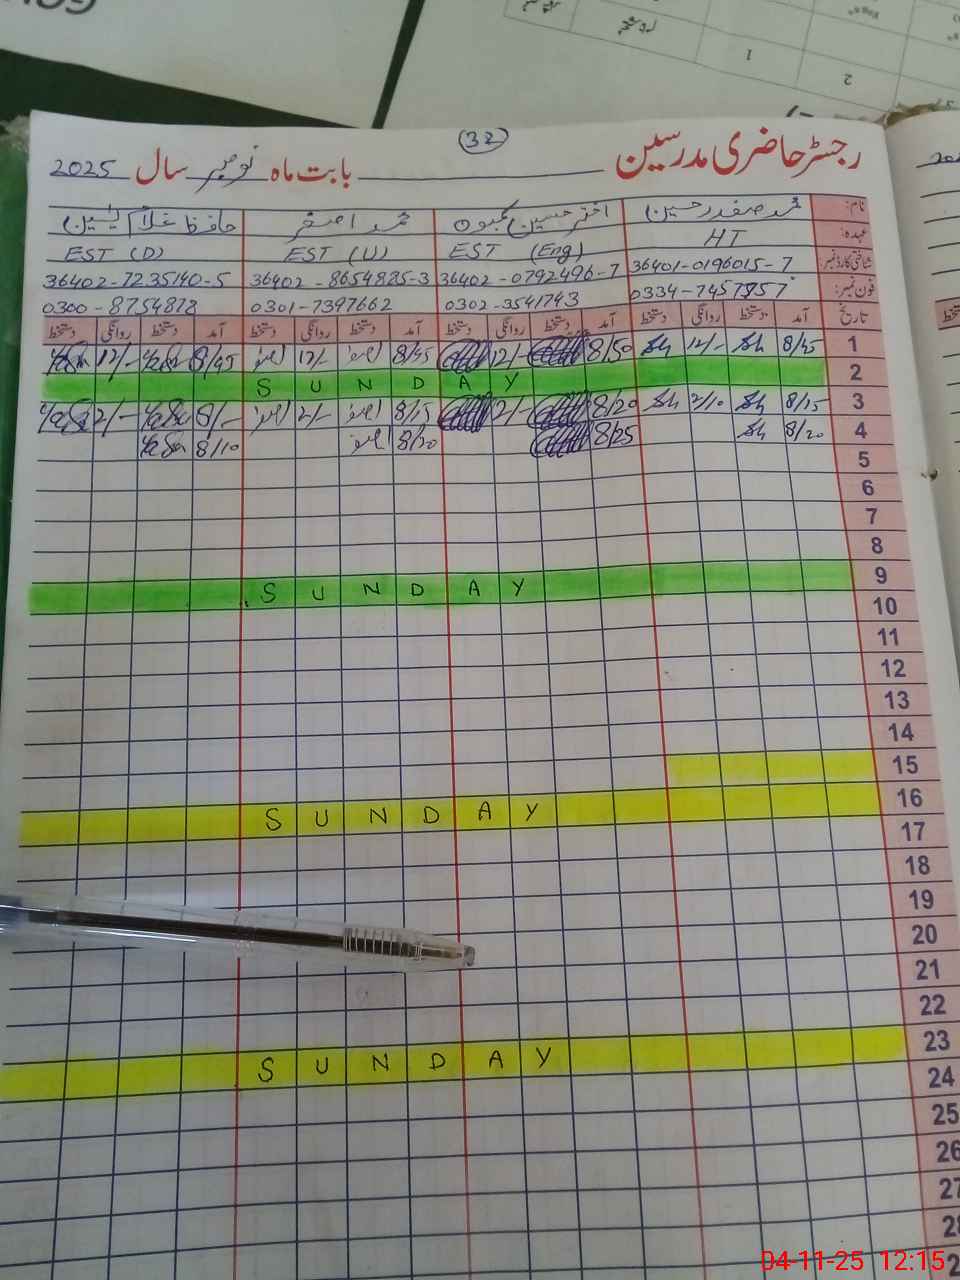 (32)
رجسٹر حاضری مدرسین بابت ماہ نومبر سال 2025
نام: محمد صفدر حسین اختر حسین کمبوہ محمد اصغر حافظ غلام یٰسین
عہدہ: HT EST (Eng) EST (U) EST (D)
شناختی کارڈ نمبر: 36401-0196015-7 36402-0792496-7 36402-8654825-3 36402-7235140-5
فون نمبر: 0334-7457957 0302-3541743 0301-7397662 0300-8754878
تاریخ آمد دستخط روانگی دستخط آمد دستخط روانگی دستخط آمد دستخط روانگی دستخط آمد دستخط روانگی دستخط
1 8/45 12/- 8/50 12/- 8/45 12/- 8/45 12/-
2 SUNDAY
3 8/15 2/10 8/20 2/- 8/15 2/- 8/- 2/-
4 8/20 8/25 8/20 8/10
5
6
7
8
9 SUNDAY
10
11
12
13
14
15
16 SUNDAY
17
18
19
20
21
22
23 SUNDAY
24
25
26
27
28
04-11-25 12:15